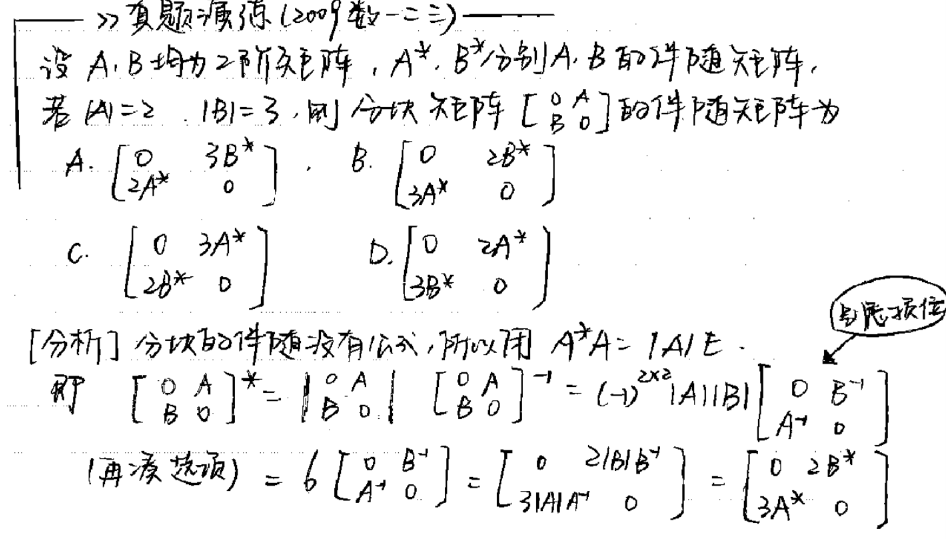 >> 真题演练(2009数一二三)
设 A, B 均为2阶矩阵, A*, B*分别A, B 的伴随矩阵,
若 |A|=2 . |B|=3, 则 分块 矩阵 [0 A; B 0] 的伴随矩阵为
A. [0 3B*; 2A* 0] . B. [0 2B*; 3A* 0]
C. [0 3A*; 2B* 0] D. [0 2A*; 3B* 0]
[分析] 分块的伴随没有公式, 所以用 A*A = |A|E .
即 [0 A; B 0]* = |0 A; B 0| [0 A; B 0]⁻¹ = (-1)^{2×2}|A||B| [0 B⁻¹; A⁻¹ 0]
(再凑选项) = 6 [0 B⁻¹; A⁻¹ 0] = [0 2|B|B⁻¹; 3|A|A⁻¹ 0] = [0 2B*; 3A* 0]